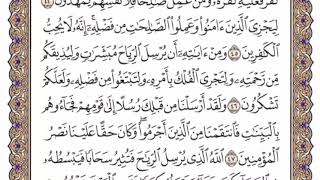 كفر فعليه كفره ومن عمل صلحا فلأنفسهم يمهدون ٤٤
ليجزي الذين ءامنوا وعملوا الصلحت من فضله إنه لا يحب
الكفرين ٤٥ ومن ءايته أن يرسل الرياح مبشرت وليذيقكم
من رحمته ولتجري الفلك بأمره ولتبتغوا من فضله ولعلكم
تشكرون ٤٦ ولقد أرسلنا من قبلك رسلا إلى قومهم فجاءوهم
بالبينت فانتقمنا من الذين أجرموا وكان حقا علينا نصر
المؤمنين ٤٧ الله الذي يرسل الريح فتثير سحابا فيبسطه